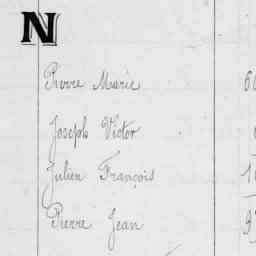 N
Pierre Marie
Joseph Victor
Julien François
Pierre Jean